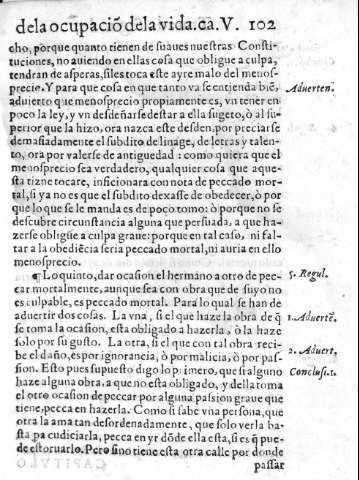 dela ocupaciõ dela vida.ca.V. 102
cho, porque quanto tienen de suaues nuestras Consti-
tuciones, no auiendo en ellas cosa que obligue a culpa,
tendran de asperas, si les toca este ayre malo del menos-
precio. Y para que cosa en que tanto va se entienda biẽ,
aduierto que menosprecio propiamente es, vn tener en
poco la ley, y vn desdeñarse de star a ella sugeto, ò al su-
perior que la hizo, ora nazca este desden, por preciarse
demasiadamente el subdito de linage, de letras y talen-
to, ora por valerse de antiguedad : como quiera que el
menosprecio sea verdadero, qualquier cosa que aques-
ta tizne tocare, inficionara con nota de peccado mor-
tal, si ya no es que el subdito dexasse de obedecer, ò por
que lo que se le manda es de poco tomo: ò porque no se
descubre circunstancia alguna que persuada, a que ha-
zerse obligue a culpa graue: porque en tal caso, ni fal-
tar a la obediẽcia seria peccado mortal, ni auria en ello
menosprecio.
¶ Lo quinto, dar ocasion el hermano a otro de pec-
car mortalmente, aunque sea con obra que de suyo no
es culpable, es peccado mortal. Para lo qual se han de
aduertir dos cosas. La vna, si el que haze la obra de q̃
se toma la ocasion, esta obligado a hazerla, ò la haze
solo por su gusto. La otra, si el que con tal obra reci-
be el daño, es por ignorancia, ò por malicia, ò por pas-
sion. Esto pues supuesto digo lo primero, que si alguno
haze alguna obra, a que no esta obligado, y della toma
el otro ocasion de peccar por alguna passion graue que
tiene, pecca en hazerla. Como si sabe vna persona, que
otra la ama tan desordenadamente, que solo verla ba-
sta pa cudiciarla, pecca en yr dõde ella està, si es q̃ pue-
de estoruarlo. Pero sino tiene esta otra calle por donde
passar
Aduerten~
5. Regul.
1. Aduertẽ.
2. Aduert.
Conclusi.1.
CAPITVLO